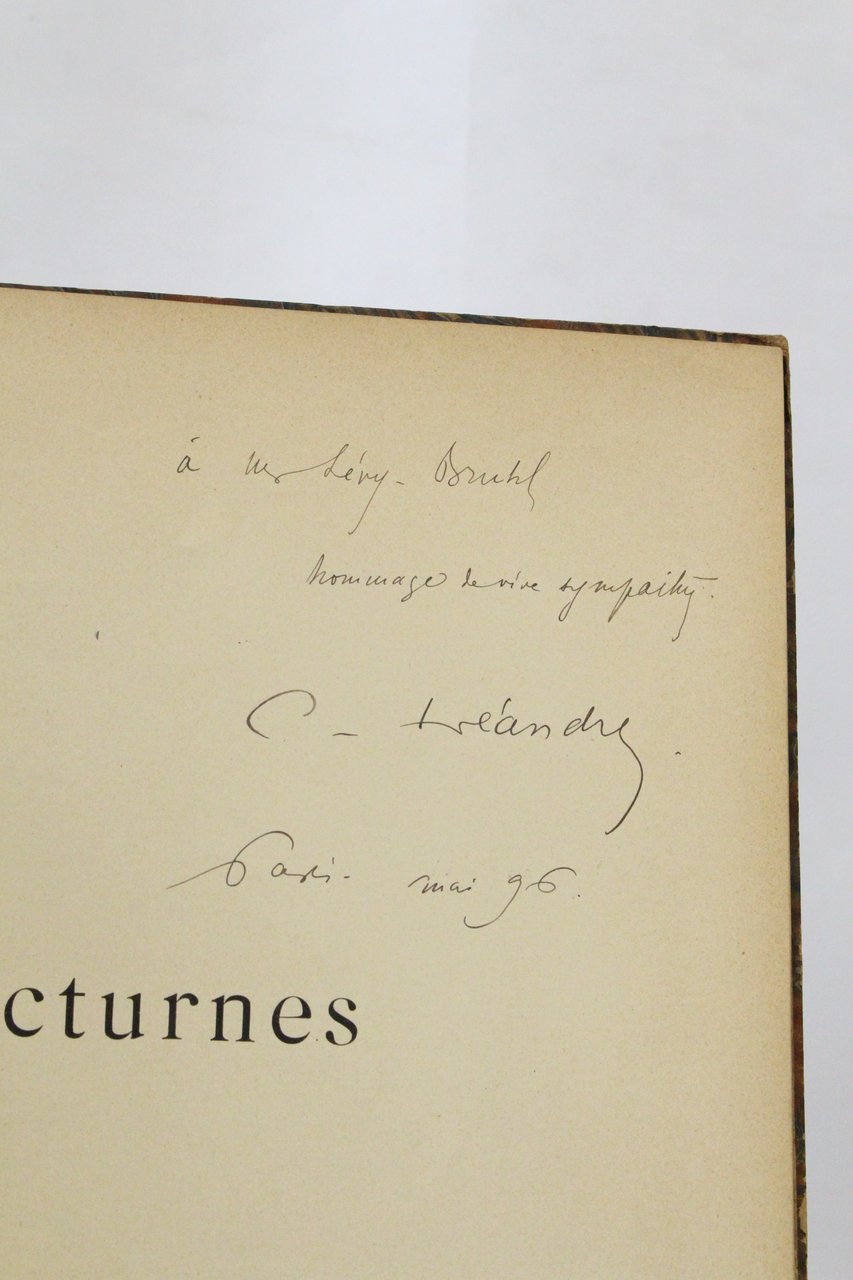 à Mr Lévy-Bruhl
hommage de vive sympathie.
C - Léandre.
Paris - mai 96.
cturnes